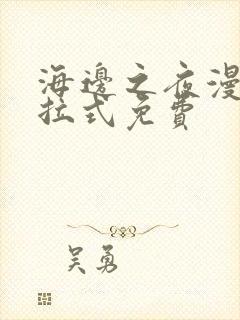 海邊之夜漫
拉式免費
吳勇